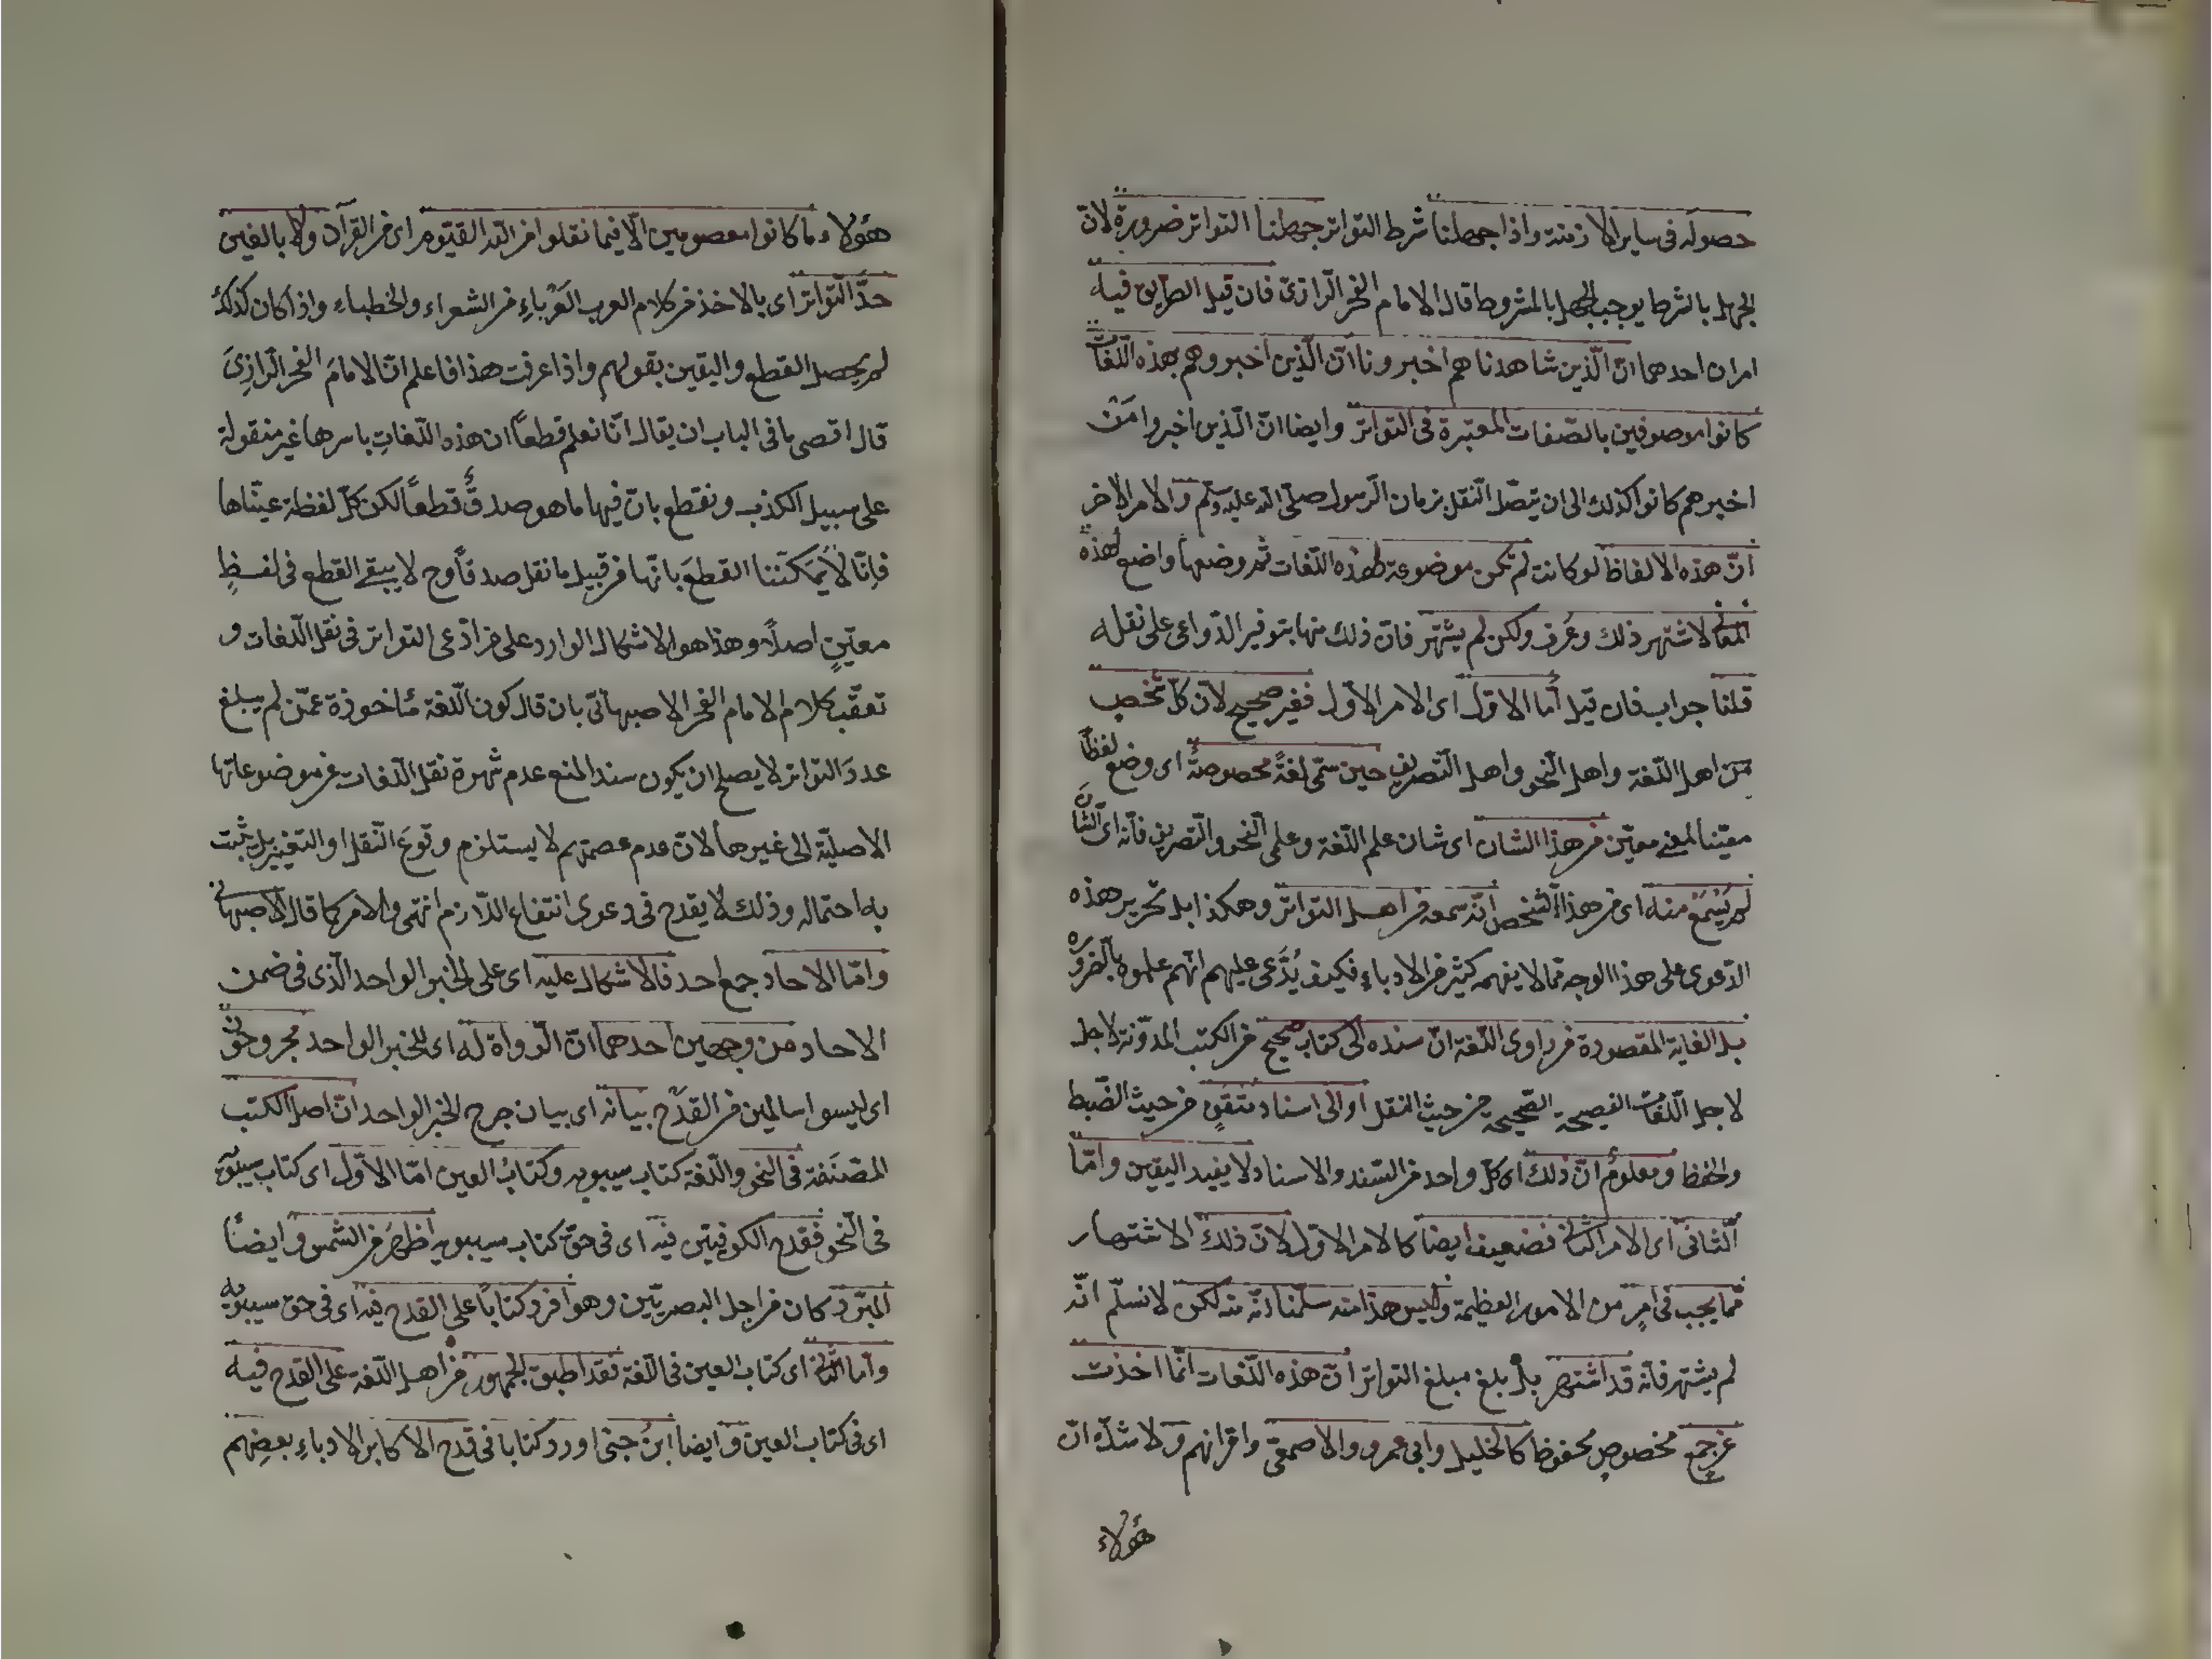 حصوله فى ساير الازمنة واذا جهلنا شرط التواتر جهلنا التواتر ضرورة لانّ
الجهل بالشرط يوجب الجهل بالمشروط قال الامام الفخر الرّازىّ فان قيل الطريق فيه
امران احدهما انّ الّذين شاهدناهم اخبرونا انّ الّذين اخبروهم بهذه اللّغات
كانوا موصوفين بالصّفات المعتبرة فى التواتر وايضا انّ الّذين اخبروا مَنْ
اخبرهم كانوا كذلك الى ان يتصّل النّقل بزمان الرّسول صلّى اللّه عليه وسلّم والامر الاخر
انّ هذه الالفاظ لو كانت لم تكن موضوعة لهذه اللّغات ثم وضعها واضع لهذه
المعانى لاشتهر ذلك وعُرف ولكن لم يشتهر فانّ ذلك منها بتوفير الدّواعى على نقله
قلنا جواب فان قيل أما الاوّل اى الامر الاوّل فغير صحيح لانّ كلّ شخص
من اهل اللّغة واهل النّحو واهل التّصريف حين سمّى لغةً مخصوصةً اى وضع لفظاً
معيّنا لمعنى معيّن من هذا الشان اى شان علم اللّغة وعلمى النّحو والتّصريف فانّه اى الشّانَ
لم يَسْمَعْ منه اى من هذا الشّخص انّه سمعه من اهل التواتر وهكذا بل تحرير هذه
الدّعوى على هذا الوجه ممّا لا يفهمه كثير من الادباءِ فكيف يُدَّعى عليهم انّهم علموه بالضّرورة
بل الغاية المقصودة من راوى اللّغة انّ سنده الى كتاب صحيح من الكتب المدوّنة لاجل
لاجل اللّغات الفصيحة الصّحيحة من حيث النقل او الى اسناد متقنٍ من حيث الضّبط
والحفظ ومعلومٌ انّ ذلك اى كلّ واحد من السّند والاسناد لا يفيد اليقين وامّا
الثّانى اى الامر الثّانى فضعيف ايضا كالامر الاوّل لانّ ذلك الاشتهار
ممّا يجب فى امرٍ من الامور العظيمة وليس هذا منه سلّمنا انّه منه لكن لا نسلّم انّه
لم يشتهر فانّه قد اشتهر بل بلغ مبلغ التواتر انّ هذه اللّغات انّما اخذت
عن جمع مخصوصٍ محفوظ كالخليل وابى عمرو والاصمعىّ واقرانهم ولا شكّ انّ
هؤلاء
هؤلاء ما كانوا معصومين الّا فيما نقلوا من اللّه القيّوم اى من القرآن ولا بالغين
حدَّ التّواتر اى بالاخذ من كلام العرب العَرْباءِ من الشعراء والخطباءِ واذا كان كذلك
لم يحصل القطع واليقين بقولهم واذا عرفت هذا فاعلم انّ الامامَ الفخر الرّازِىَّ
قال اقصى ما فى الباب ان يقال انّا نعلم قطعًا ان هذه اللّغاتِ باسرها غير منقولة
على سبيل الكذب ونقطع بانّ فيها ما هو صدقٌ قطعاً لكن كلّ لفظة عيّنّاها
فاِنّا لا يمكننا القطعَ بانّها من قبيل ما نقل صدقاً وح لا يبقى القطع فى لفظٍ
معيّنٍ اصلًا وهذا هو الاشكال الوارد على من ادّعى التواتر فى نقل اللّغات و
تعقّب كلام الامام الفخر الاصبهانّى بان قال كون اللّغة مأخوذة عمّن لم يبلغ
عددَ التواتر لا يصلح ان يكون سند المنع عدم شهرة نقل اللّغات عن موضوعاتها
الاصليّة الى غيرها لانّ عدم عصمتهم لا يستلزم وقوعَ النّقل او التغيير بل يثبت
به احتماله وذلك لا يقدح فى دعوى انتفاء اللّازم انتهى والامر كما قال الاصبهانى
وامّا الاحاد جمع احد فالاشكال عليه اى على الخبر الواحد الّذى فى ضمن
الاحاد من وجهين احدهما انّ الرّواة له اى للخبر الواحد مجروحون
اى ليسوا سالمين من القدْح بيانه اى بيان جرح الخبر الواحد انّ اصل الكتب
المصنَّفة فى النحو واللّغة كتاب سيبويه وكتابُ العين امّا الاوّل اى كتاب سيبويه
فى النّحو فقدح الكوفيّين فيه اى فى حقّ كتاب سيبويه اظهرَ من الشمس وايضاً
المبرّد كان من اجل البصريّين وهو افرد كتابًا على القدح فيه اى فى حق سيبويه
وأما الثّانى اى كتاب العين فى اللّغة فقد اطبق الجمهور من اهل اللّغة على القدح فيه
اى فى كتاب العين وايضا ابنُ جنّى اورد كتابا فى قدح الاكابر الادباءِ بعضِهم